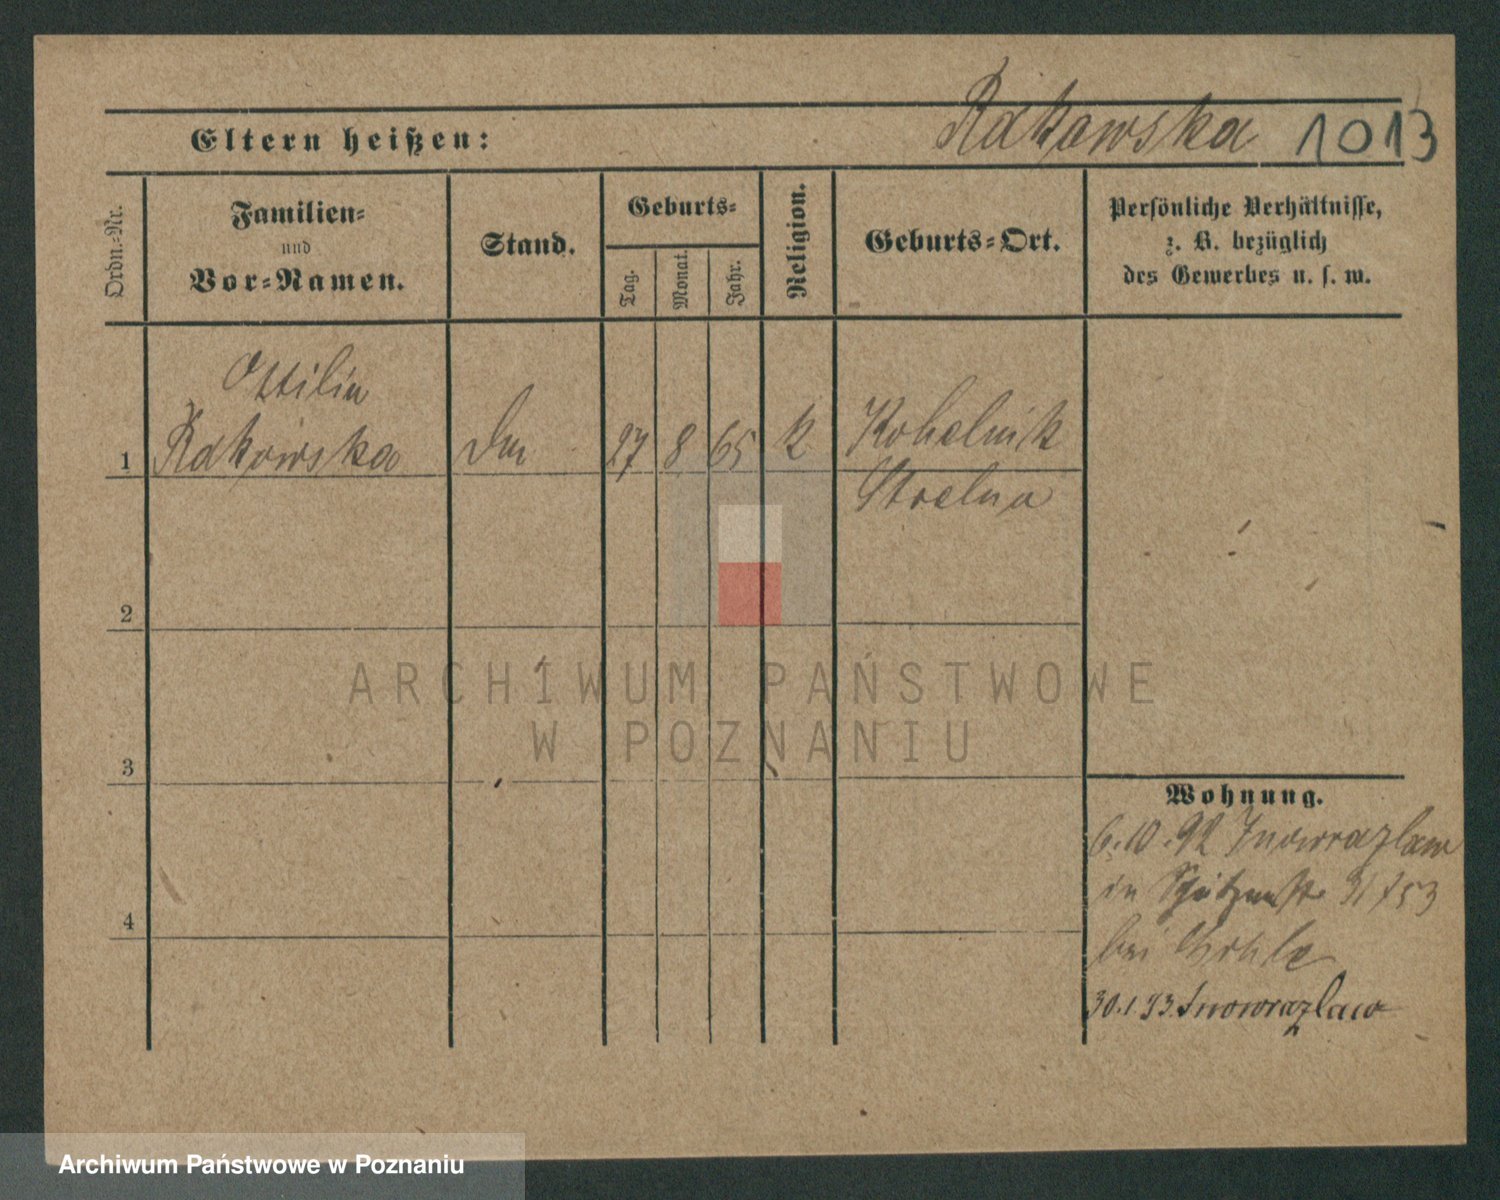 Rakowska 1013
Eltern heißen:
Ordn.-Nr.
Familien-
und
Vor-Namen.
Stand.
Geburts-
Tag.
Monat.
Jahr.
Religion.
Geburts-Ort.
Persönliche Verhältnisse,
z. B. bezüglich
des Gewerbes u. s. w.
Ottilie
1 Rakowska 27 8 65 k Kobelnik
Strelno
2
3
4
Wohnung.
6.10.92 Inowrazlaw
in
bei
30.1.93 Inowrazlaw
ARCHIWUM PAŃSTWOWE
W POZNANIU
Archiwum Państwowe w Poznaniu